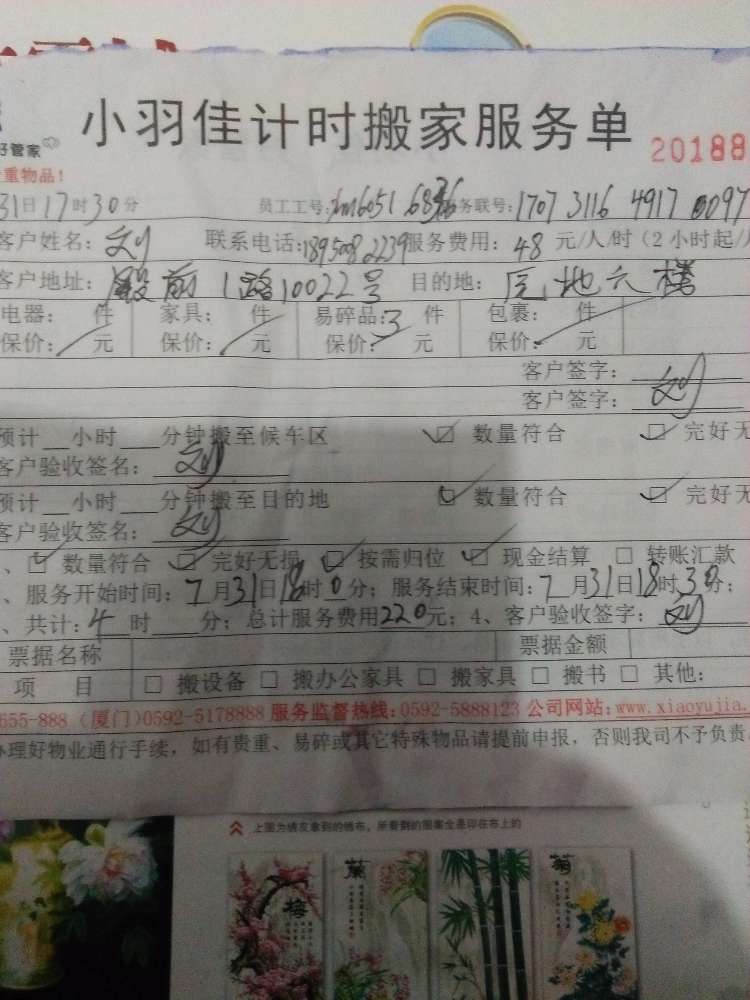 小羽佳计时搬家服务单
好管家
20188
重物品！
31日17时30分 员工工号： 务联号：1707 3116 4917 0097
客户姓名：刘 联系电话：1895082239服务费用：48元/人/时（2小时起/
客户地址：殿前1路10022号 目的地：元地六楼
电器： 件 家具： 件 易碎品：3 件 包裹： 件
保价： 元 保价： 元 保价： 元 保价： 元
客户签字：
客户签字：刘
预计__小时___分钟搬至候车区 ☑ 数量符合 ☑ 完好无
客户验收签名：刘
预计__小时___分钟搬至目的地 ☑ 数量符合 ☑ 完好无
客户验收签名：刘
、☑ 数量符合 ☑ 完好无损 ☑ 按需归位 ☑ 现金结算 □ 转账汇款
、服务开始时间：7月31日18时0分；服务结束时间：7月31日18时30分；
、共计：4时 分；总计服务费用220元；4、客户验收签字：刘
票据名称 票据金额
项 目 □ 搬设备 □ 搬办公家具 □ 搬家具 □ 搬书 □ 其他：
655-888（厦门）0592-5178888 服务监督热线：0592-5888123 公司网站：www.xiaoyujia.
办理好物业通行手续，如有贵重、易碎或其它特殊物品请提前申报，否则我司不予负责
上图为绣友拿到的绣布，所看到的图案全是印在布上的
梅 蘭 菊